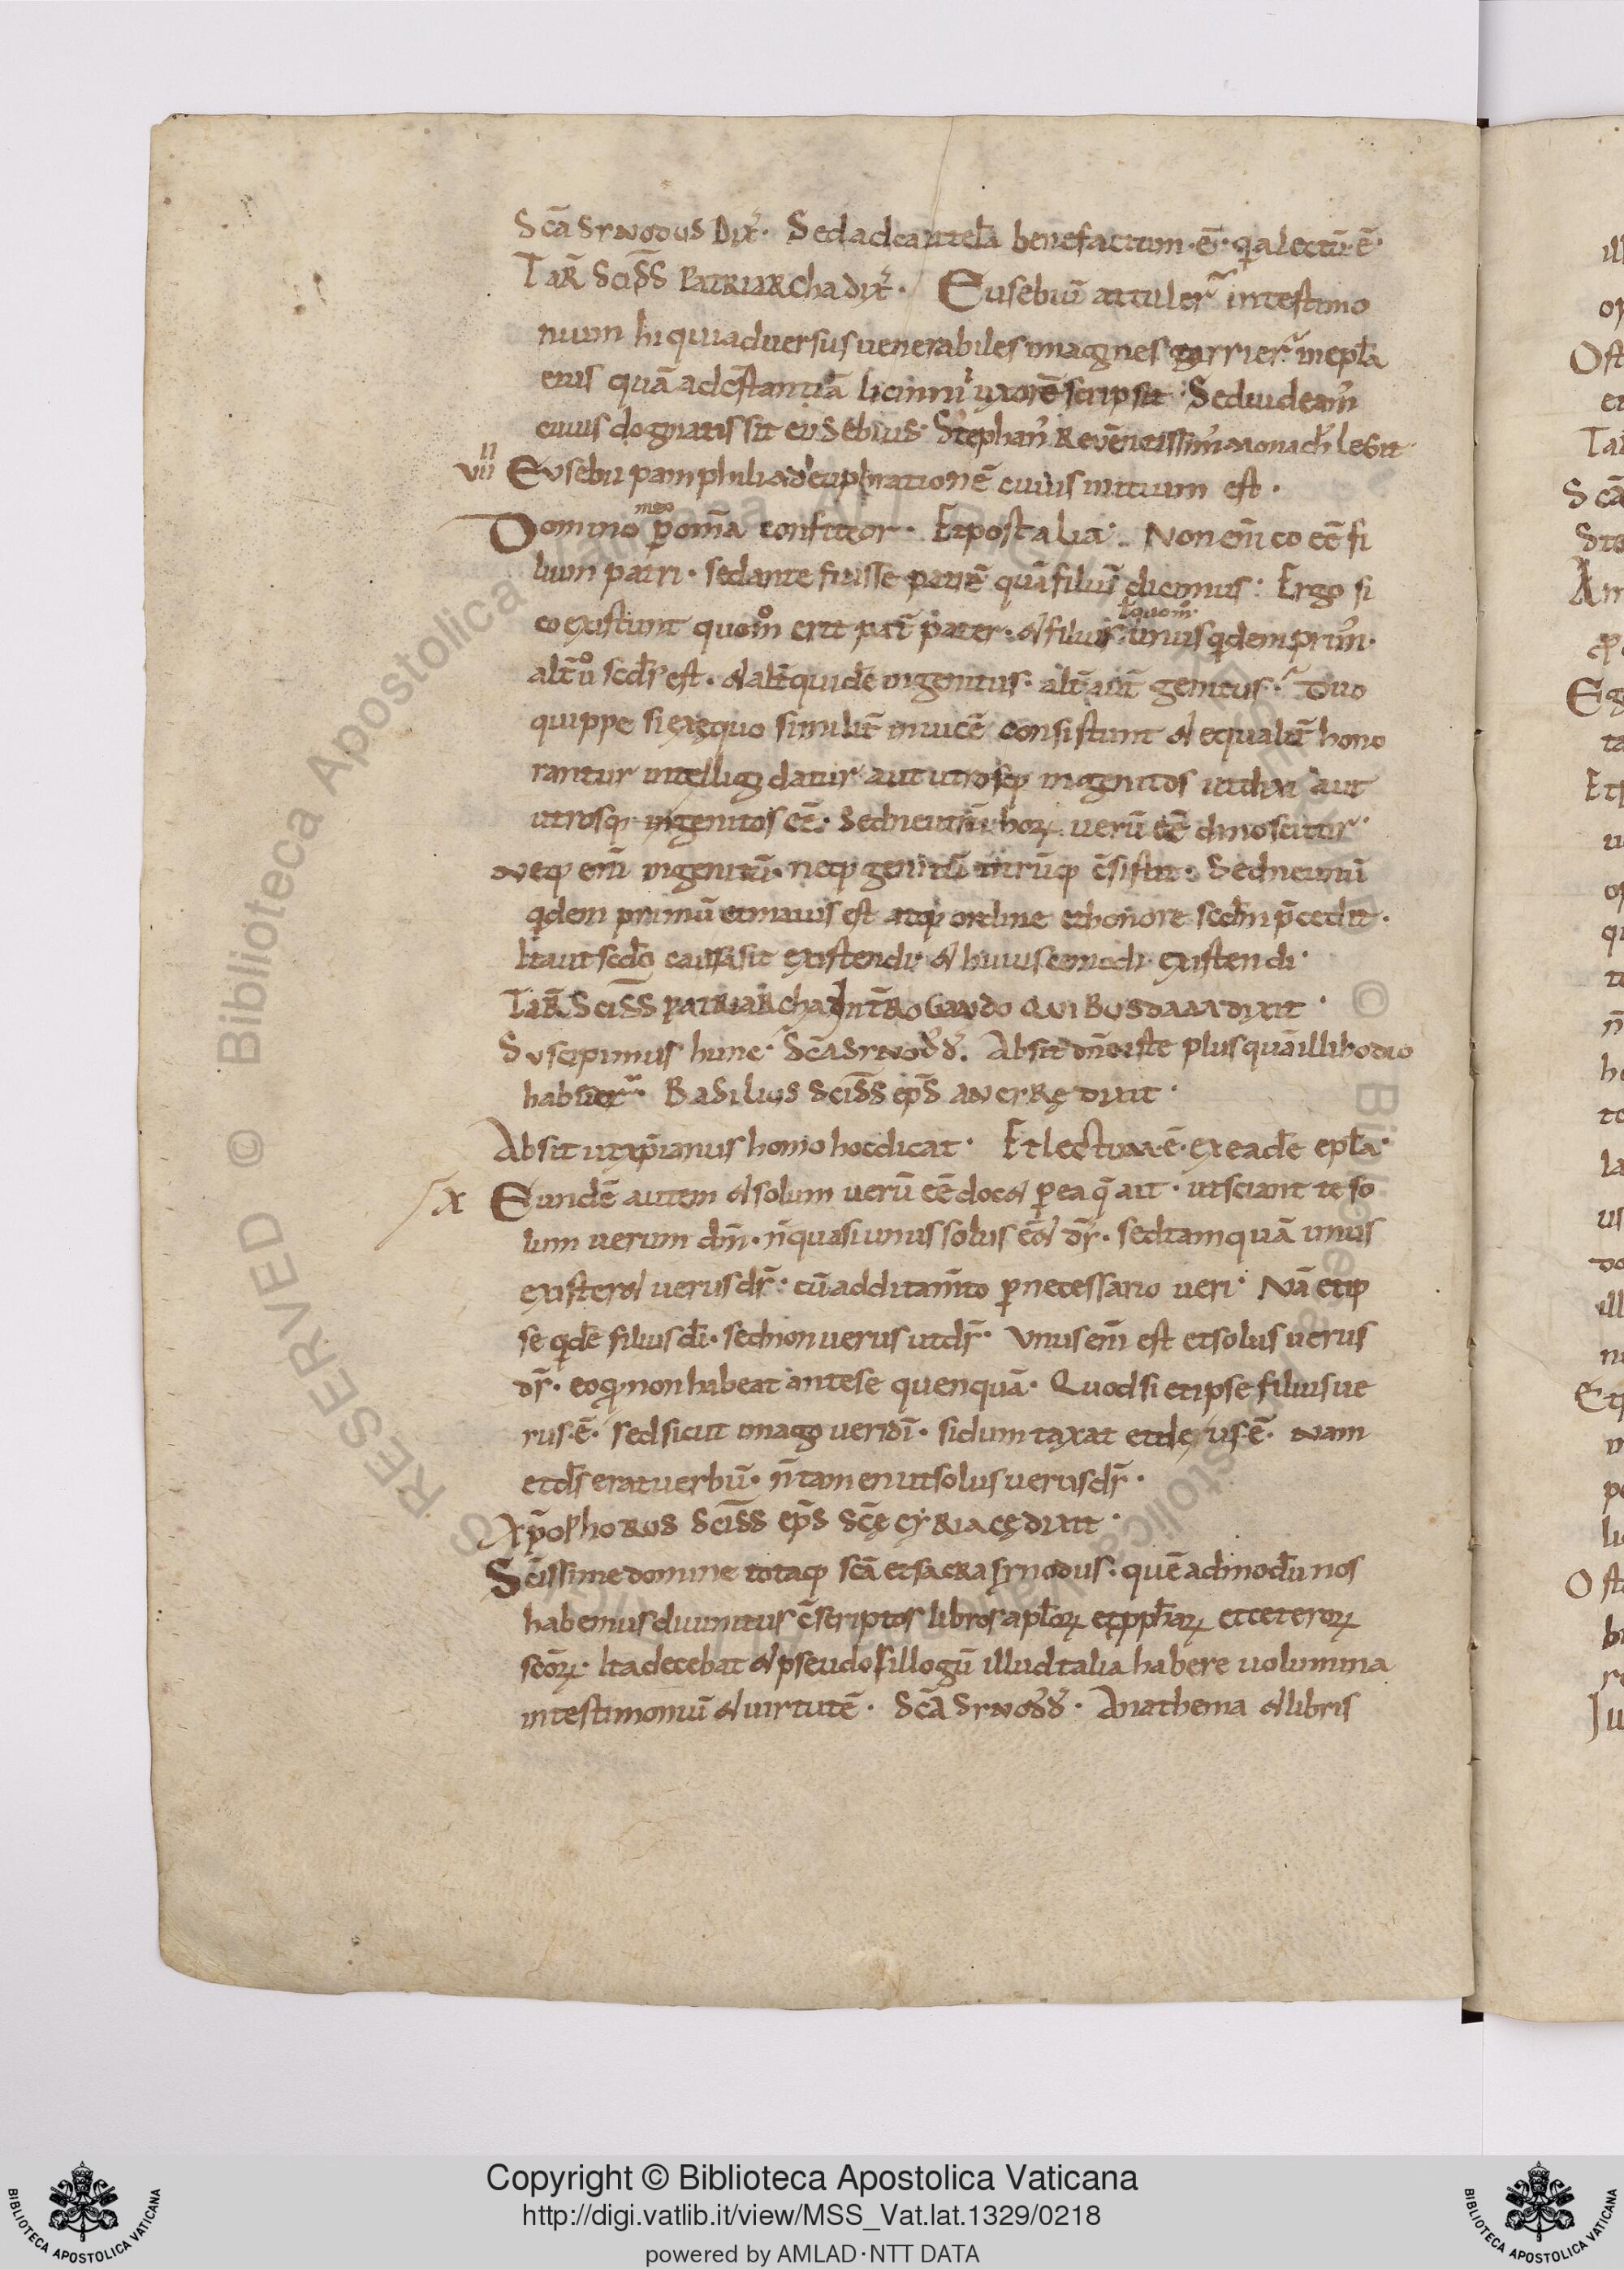 Scā SYNODUS Dix̄· Sed ad cautelā benefactum·ē· qa lectū·ē·
TaR̄ Sciss̄ PatRiaRcha dix̄· Eusebiū attuler̄ intestimo
nium hi qui adversus venerabiles imagines garrier̄ inepl̄a
eius quā ad cstantiā licinni uxorē scripsit· Sed videam̄
cuius dogmatis sit eusebius· Stephan̄ Reverentissim̄ monach̄ legit·
VIIII Eusebii pamphili ad euphrationē cuius initium est·
Domino meo p̄ om̄a confiteor· Et post alia· Non eni co eē fi
lium patri· sed ante fuisse patrē quā filiū dicimus· Ergo si
coexistunt quomo erit pat̄ pater· & filius filius· unus qdem prim̄·
alt̄ v̊ scd̄s est· & alt̄ quidē ingenitus· alt̄ aut̄ genitus· Duo
quippe si ex equo similit̄ invicē consistunt & equalit̄ hono
rantur intelligi datur aut utrosq; ingenitos ut dixi aut
utrosq; ingenitos eē· Sed neutrū horꝝ verū eē dinoscitur·
Neq; eni ingenitū· neq; genitū utrūq; c̄sistit· Sed neutrū
qdem primū et maius est atq; ordine et honore scdm̄ p̄cedit·
Ita ut scdō causa sit existendi· & huiuscemodi existendi·
TaR̄ Sciss̄ PatRiaRcha INt̄RoGaNdo QuiBusdam dixit·
Suscipimus hunc· Scā SYNod̄ d̄· Absit dn̄e iste plus quā illi hodio
habitier̄· Basilius sciss̄ ep̄s aNcyRę dixit·
Absit ut xp̄ianus homo hoc dicat· Et lectum·ē· ex eadē epl̄a·
X Eundē autem & solum verū eē doc& p̄ ea q̄ ait· ut sciant te so
lum verum dm̄· n̄ quasi unus solus eēt dr̄· sed tamquā unus
exister& verus dr̄· cū additam̄to p̄ necessario veri· Nā et ip
se qdē filius di· sed non verus ut dr̄· Unus eni est et solus verus
dr̄· eo qd non habeat ante se quenquā· Quod si et ipse filius ve
rus·ē· sed sicut imago veri di· si dum taxat et ds ipse·ē· Nam
et ds̄ erat verbū· n̄ tamen ut solus verus dr̄·
Xp̄ophoRus sciss̄ ep̄s scē cyRiacę dixit·
Scissime domine totaq; scā et sacra synodus· quē admodū nos
habemus divinitus c̄scriptos libros apl̄orꝝ et pph̄arꝝ et ceterorꝝ
scorꝝ· Ita decebat & pseudosillogū illud talia habere volumina
in testimoniū & virtutē· Scā SYNod̄ d̄· Anathema & libris
Copyright © Biblioteca Apostolica Vaticana
http://digi.vatlib.it/view/MSS_Vat.lat.1329/0218
powered by AMLAD·NTT DATA